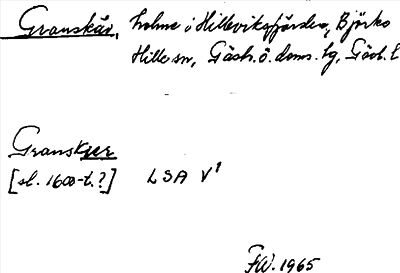 Granskär, holme i Hilleviksfjärden, Björkö
Hille sn, Gästr. ö. doms. tg, Gävl. l
Gransker
[sl. 1600-t.?] LSA V¹
FW. 1965